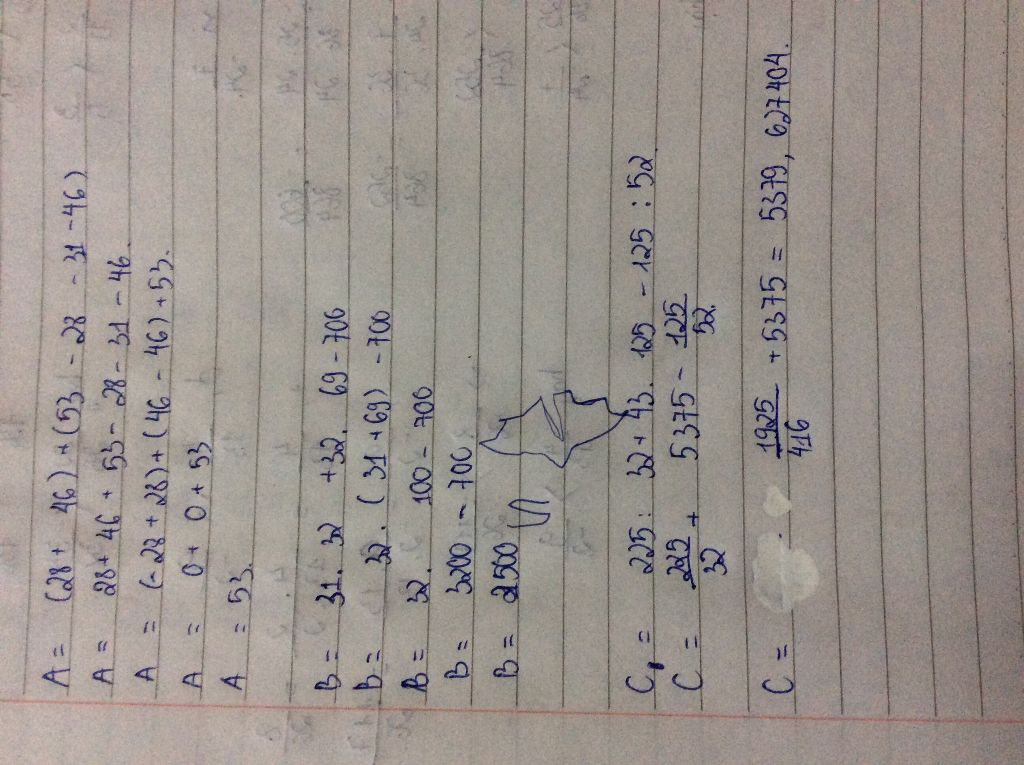 A = (28 + 46) + (53 - 28 - 31 - 46)
A = 28 + 46 + 53 - 28 - 31 - 46.
A = (-28 + 28) + (46 - 46) + 53.
A = 0 + 0 + 53
A = 53.
B = 31. 32 + 32. 69 - 700
B = 32. (31 + 69) - 700
B = 32. 100 - 700
B = 3200 - 700.
B = 2500
C = 225 : 32 + 43. 125 - 125 : 52.
C = 225/32 + 5375 - 125/52
C = 1925/416 + 5375 = 5379, 627404.